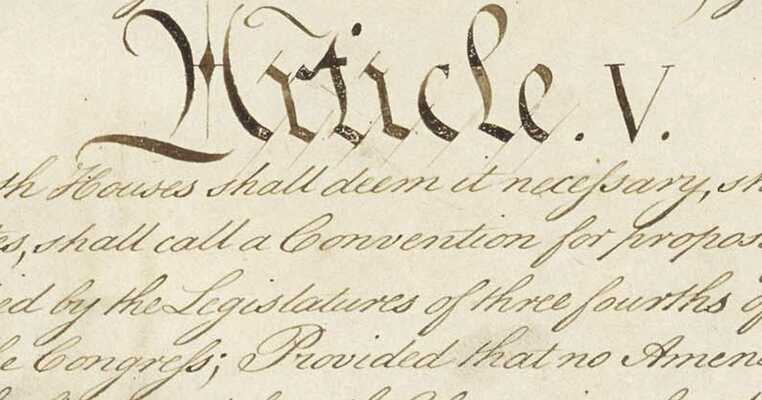 Article. V.
th Houses shall deem it necessary, sh
es, shall call a Convention for propos
ied by the Legislatures of three fourths of
e Congress; Provided that no Amen